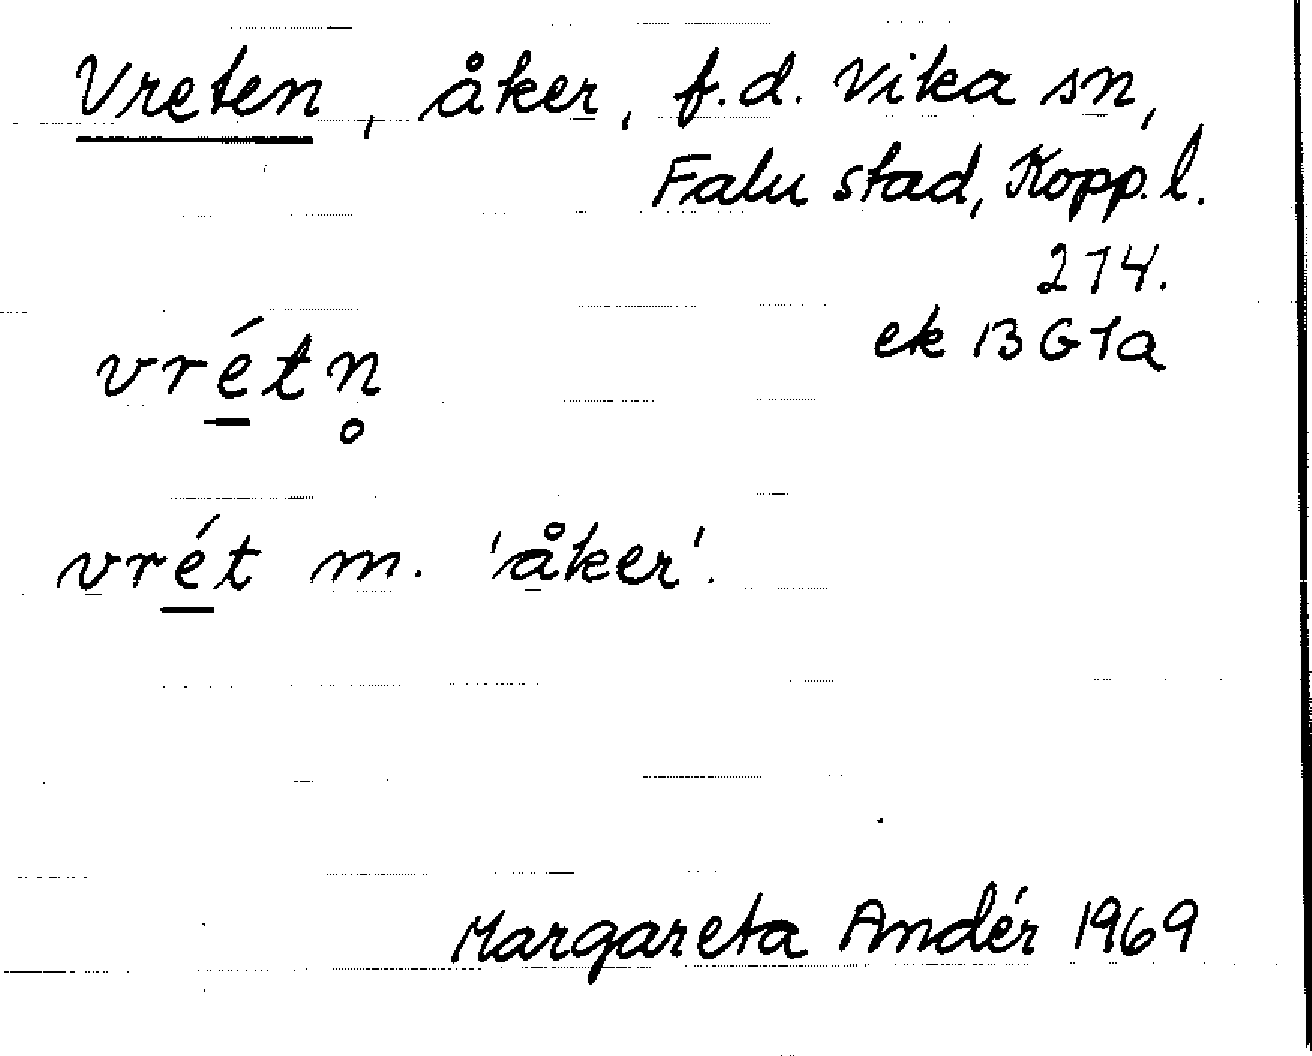 Vreten, åker, f.d. Vika sn,
Falu stad, Kopp. l.
214.
ek 13 G 1a
vré̱tn̥
vré̱t m. 'åker'.
Margareta Andér 1969